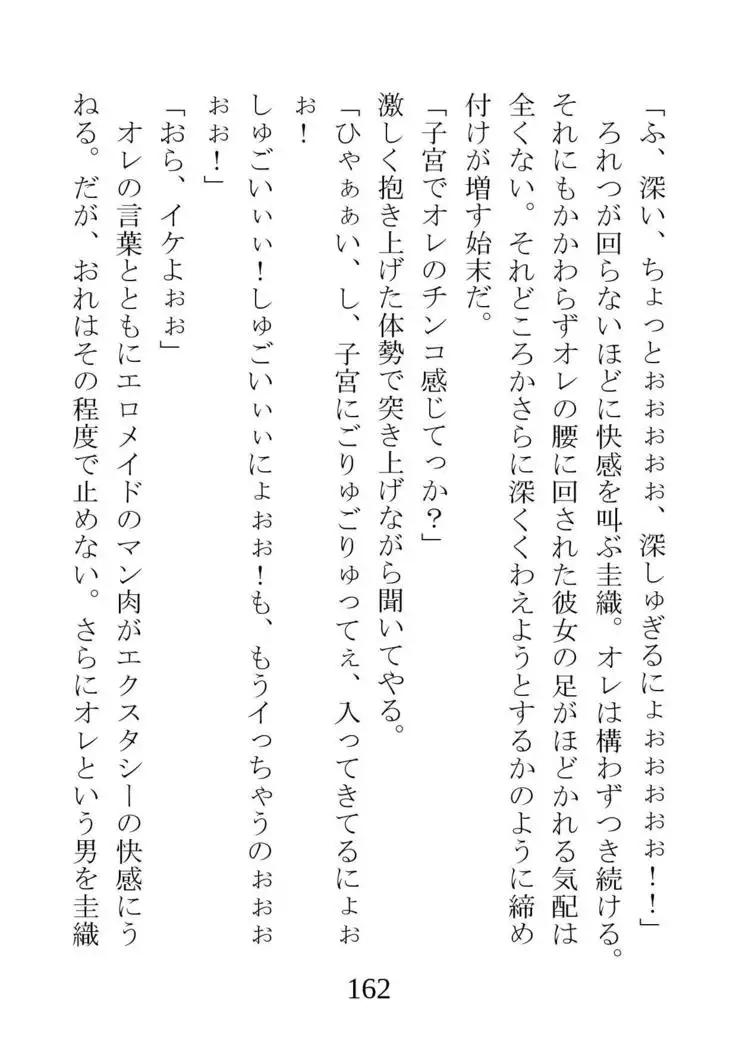 「ふ、深い、ちょっとぉぉぉぉぉ、深しゅぎるにょぉぉぉぉぉ！！」
　ろれつが回らないほどに快感を叫ぶ圭織。オレは構わずつき続ける。
それにもかかわらずオレの腰に回された彼女の足がほどかれる気配は
全くない。それどころかさらに深くくわえようとするかのように締め
付けが増す始末だ。
「子宮でオレのチンコ感じてっか？」
激しく抱き上げた体勢で突き上げながら聞いてやる。
「ひゃぁぁい、し、子宮にごりゅごりゅってぇ、入ってきてるにょぉ
ぉ！
しゅごいぃぃ！しゅごいぃぃにょぉぉ！も、もうイっちゃうのぉぉぉ
ぉぉ！」
「おら、イケよぉぉ」
　オレの言葉とともにエロメイドのマン肉がエクスタシーの快感にう
ねる。だが、おれはその程度で止めない。さらにオレという男を圭織
162